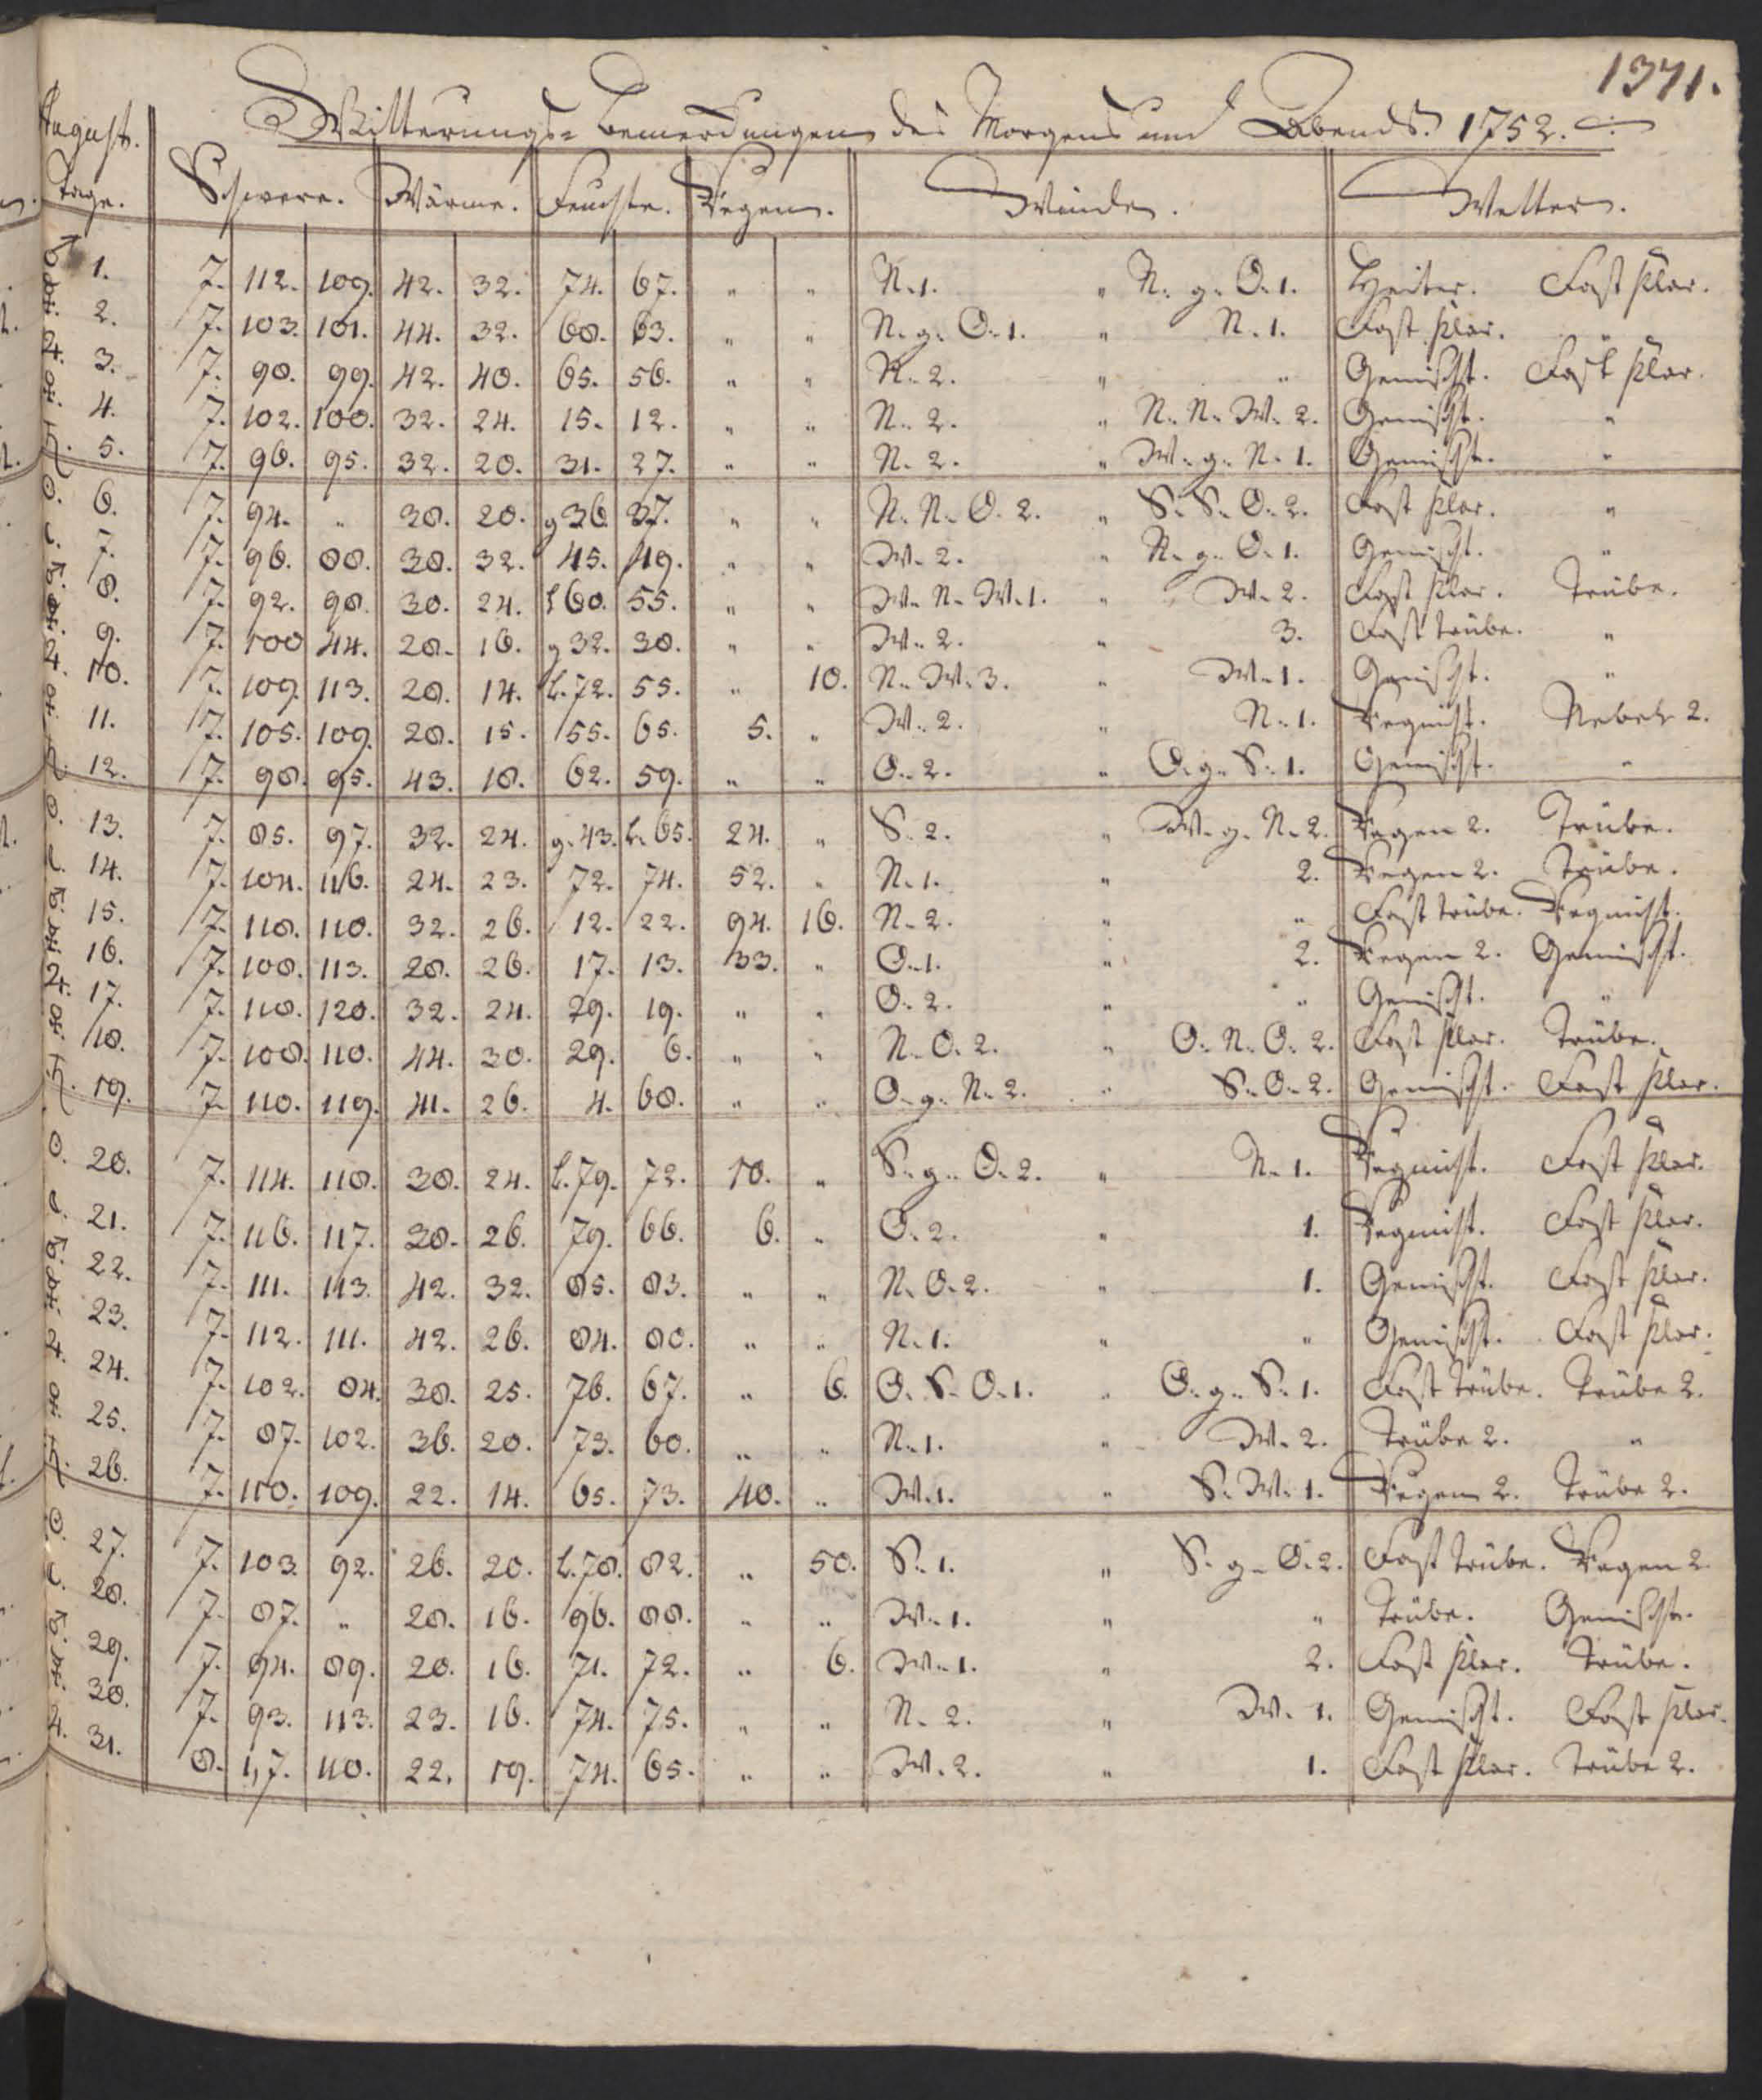 1371.
Witterungs-Bemerckungen des Morgens und Abends. 1752.
August.
Tage. Schwere. Wärme. Feuchte. Regen. Winde. Wetter.
♂. 1. 7. 112. 109. 42. 32. 74. 67. " " N. 1. " N. g. O. 1. Heiter. Fast klar.
☿. 2. 7. 103. 101. 44. 32. 68. 63. " " N. g. O. 1. " N. 1. Fast klar. "
♃. 3. 7. 98. 99. 42. 40. 65. 56. " " N. 2. " " Gemischt. Fast klar.
♀. 4. 7. 102. 100. 32. 24. 15. 12. " " N. 2. " N. N. W. 2. Gemischt. "
♄. 5. 7. 96. 95. 32. 20. 31. 27. " " N. 2. " W. g. N. 1. Gemischt. "
☉. 6. 7. 94. " 38. 28. g 36. 37. " " N. N. O. 2. " S. S. O. 2. Fast klar. "
☾. 7. 7. 96. 88. 38. 32. 45. 49. " " W. 2. " N. g. O. 1. Gemischt. "
♂. 8. 7. 92. 98. 30. 24. l 60. 55. " " W. N. W. 1. " W. 2. Fast klar. Trübe.
☿. 9. 7. 100 44. 28. 16. g 32. 30. " " W. 2. " 3. Fast trübe. "
♃. 10. 7. 109. 113. 28. 14. l. 72. 55. " 10. N. W. 3. " W. 1. Gemischt. "
♀. 11. 7. 105. 109. 28. 15. 55. 65. 5. " W. 2. " N. 1. Regnicht. Nebel 2.
♄. 12. 7. 98. 95. 43. 18. 62. 59. " " O. 2. " O. g. S. 1. Gemischt. "
☉. 13. 7. 85. 97. 32. 24. g. 43. l. 65. 24. " S. 2. " W. g. N. 2. Regen 2. Trübe.
☾. 14. 7. 104. 116. 24. 23. 72. 74. 52. " N. 1. " 2. Regen 2. Trübe.
♂. 15. 7. 118. 110. 32. 26. 12. 22. 94. 16. N. 2. " " Fast trübe. Regnicht.
☿. 16. 7. 108. 113. 28. 26. 17. 13. 33. " O. 1. " 2. Regen 2. Gemischt.
♃. 17. 7. 118. 120. 32. 24. 29. 19. " " O. 2. " " Gemischt. "
♀. 18. 7. 108. 110. 44. 30. 29. 6. " " N. O. 2. " O. N. O. 2. Fast klar. Trübe.
♄. 19. 7. 110. 119. 41. 26. 4. 60. " " O. g. N. 2. " S. O. 2. Gemischt. Fast klar.
☉. 20. 7. 114. 118. 38. 24. l. 79. 72. 10. " S. g. O. 2. " N. 1. Regnicht. Fast klar.
☾. 21. 7. 116. 117. 38. 26. 79. 66. 6. " O. 2. " 1. Regnicht. Fast klar.
♂. 22. 7. 111. 113. 42. 32. 85. 83. " " N. O. 2. " 1. Gemischt. Fast klar.
☿. 23. 7. 112. 111. 42. 26. 84. 80. " " N. 1. " " Gemischt. Fast klar.
♃. 24. 7. 102. 84. 38. 25. 76. 67. " 6. O. S. O. 1. " O. g. S. 1. Fast trübe. Trübe 2.
♀. 25. 7. 87. 102. 36. 20. 73. 60. " " N. 1. " W. 2. Trübe 2. "
♄. 26. 7. 110. 109. 22. 14. 65. 73. 40. " W. 1. " S. W. 1. Regen 2. Trübe 2.
☉. 27. 7. 103. 92. 26. 20. l. 78. 82. " 50. S. 1. " S. g. O. 2. Fast trübe. Regen 2.
☾. 28. 7. 87. " 28. 16. 96. 88. " " W. 1. " " Trübe. Gemischt.
♂. 29. 7. 94. 89. 20. 16. 71. 72. " 6. W. 1. " 2. Fast klar. Trübe.
☿. 30. 7. 93. 113. 23. 16. 74. 75. " " N. 2. " W. 1. Gemischt. Fast klar.
♃. 31. 8. 1,7. 110. 22. 19. 74. 65. " " W. 2. " 1. Fast klar. Trübe 2.